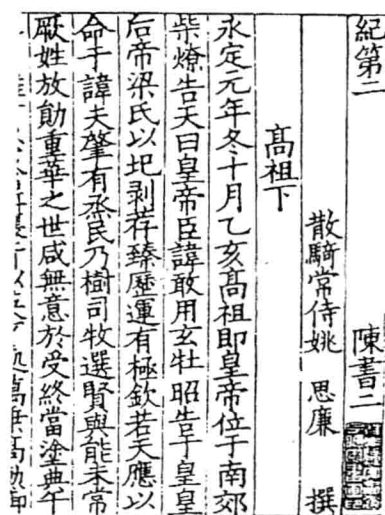 紀第二 陳書二
散騎常侍姚 思廉 撰
高祖下
永定元年冬十月乙亥高祖即皇帝位于南郊
柴燎告天曰皇帝臣諱敢用玄牡昭告于皇皇
后帝梁氏以圯剥荐臻歷運有極欽若天應以
命于諱夫肇有烝民乃樹司牧選賢與能未常
厥姓放勛重華之世咸無意於受終當塗典午